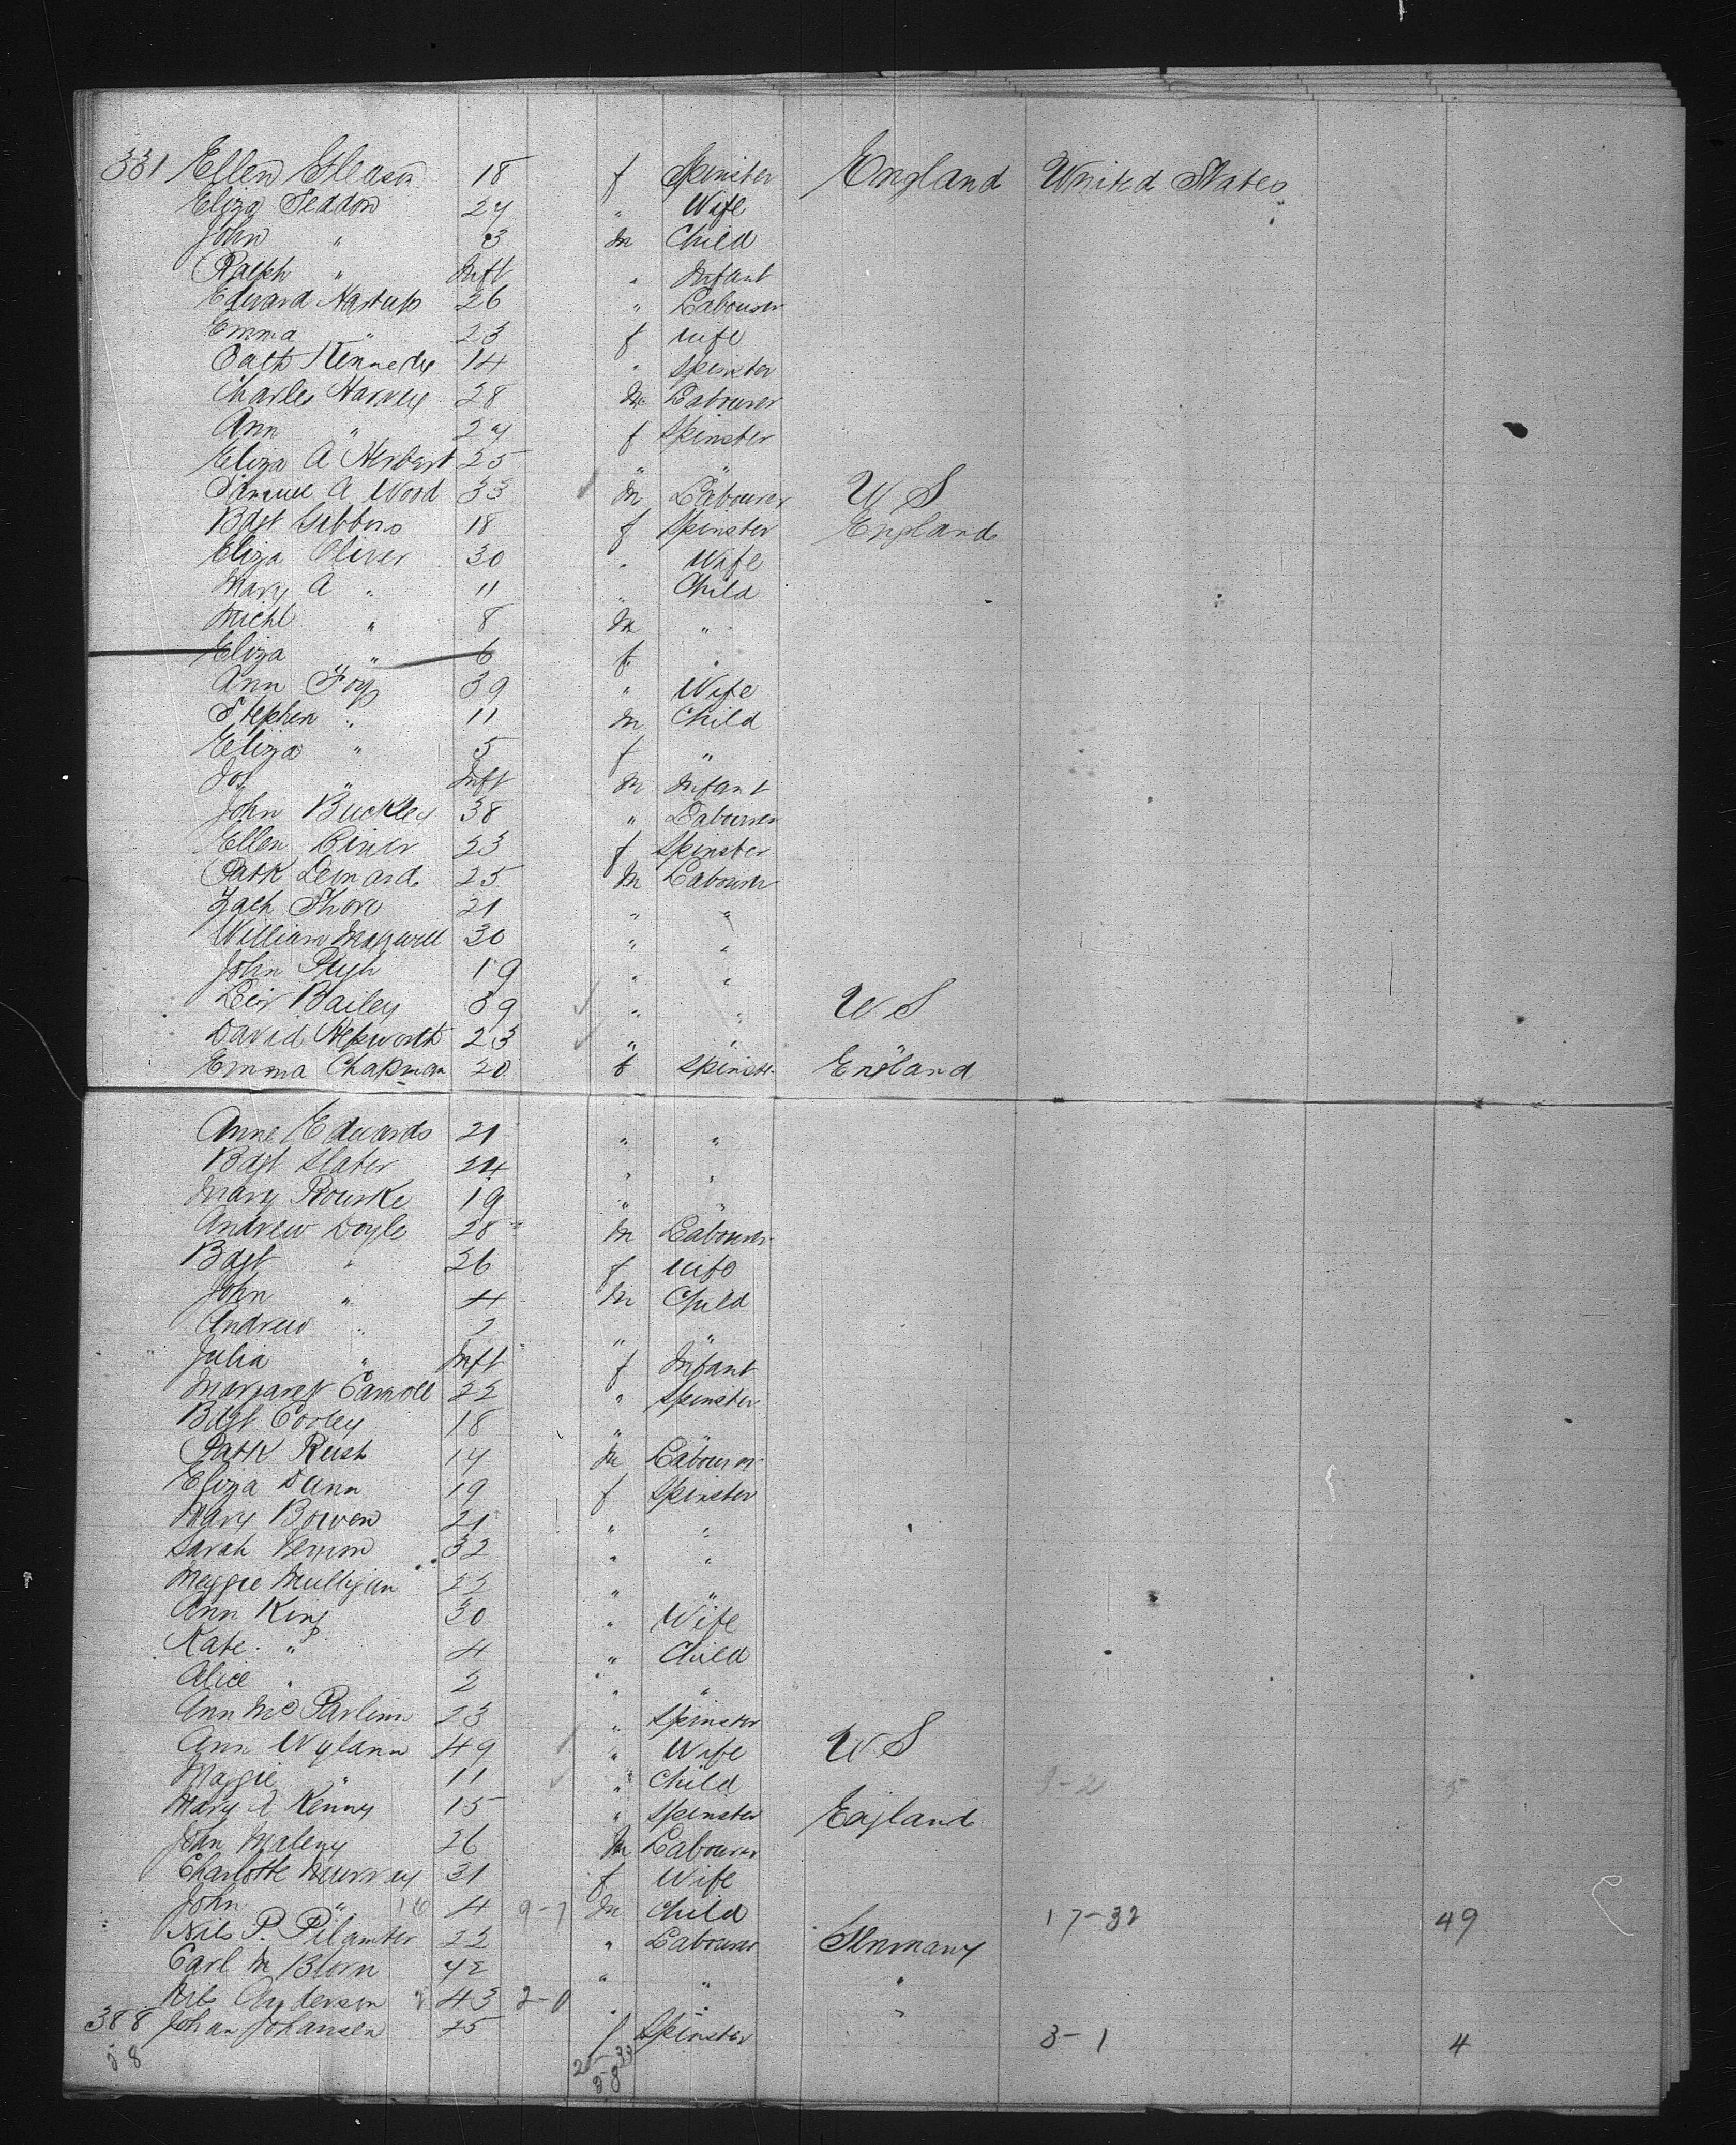 331 Ellen Gleason 18 f Spinster England United States
Eliza Seddon 24 " Wife
John " 3 m Child
Ralph " Inft " Infant
Edward Hartup 26 " Labourer
Emma " 23 f wife
Cath Kennedy 14 " Spinster
Charles Harvey 28 m Labourer
Ann " 24 f Spinster
Eliza A Herbert 25 " "
Samuel A Wood 33 m Labourer U S
Bdgt Gibbons 18 f Spinster England
Eliza Oliver 30 " Wife
Mary A " 11 " Child
Michl " 8 m "
Eliza " 6 f "
Ann Foy 39 " Wife
Stephen " 11 m Child
Eliza " 5 f "
Jos " Inft m Infant
John Buckley 38 " Labourer
Ellen 23 f Spinster
Patk Lenard 25 m Labourer
Zach Shore 21 " "
William Maxwell 30 " "
John Pugh 19 " "
Levi Bailey 39 " " U S
David Hepworth 23 " " "
Emma Chapman 20 f Spinstr England
Anne Edwards 21 " "
Bdgt Slater 24 " "
Mary Rourke 19 " "
Andrew Doyle 28 m Labourer
Bdgt " 26 f wife
John " 4 m Child
Andrew " 2 " "
Julia " Inft f Infant
Margaret Carroll 22 " Spinster
Bdgt Cooley 18 " "
Patk Rush 14 m Labourer
Eliza Dann 19 f Spinster
Mary Bowen 21 " "
Sarah Vernon 32 " "
Meggie Mulligan 22 " "
Ann King 30 " Wife
Kate " 4 " Child
Alice " 2 " "
Ann McParlinn 23 " Spinster
Ann Nylann 49 " Wife U S
Maggie " 11 " Child 5
Mary A Kenny 15 " Spinster England
John Maleny 26 m Labourer
Charlotte Murray 31 f Wife
John " 16 4 9-7 m Child 17-32 49
Nils P. Pilamter 22 " Labourer Germany
Carl M Blorn 42 " " "
Nils Anderson 2 43 2-0 " " "
388 Johan Johansen 25 f Spinster 3-1 4
58 25-33
58